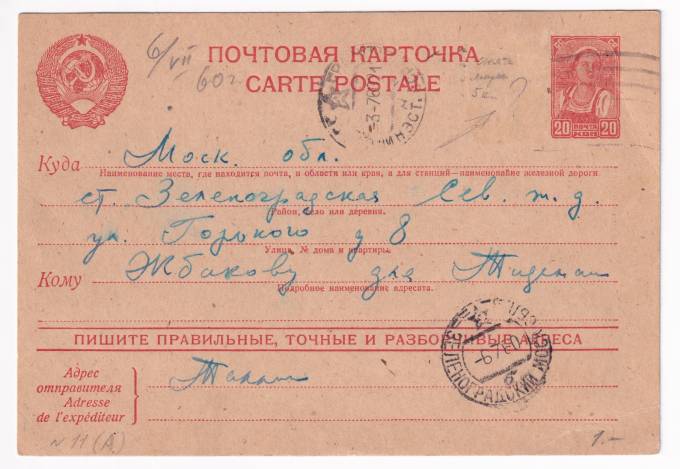 6/VII
60г
ПОЧТОВАЯ КАРТОЧКА
CARTE POSTALE
5к
20 ПОЧТА 20
КОП
Куда Моск. обл.
Наименование места, где находится почта, и области или края, а для станций—наименование железной дороги
ст. Зеленоградская Сев. ж. д.
Район, село или деревня.
ул. Горького д 8
Улица, № дома и квартиры.
Кому Жбакову для
Подробное наименование адресата.
ПИШИТЕ ПРАВИЛЬНЫЕ, ТОЧНЫЕ И РАЗБОРЧИВЫЕ АДРЕСА
ЗЕЛЕНОГРАДСКИЙ МОСК. ОБЛ.
-6760
Адрес
отправителя
Adresse
de l'expéditeur
N 11 (А)
1.-